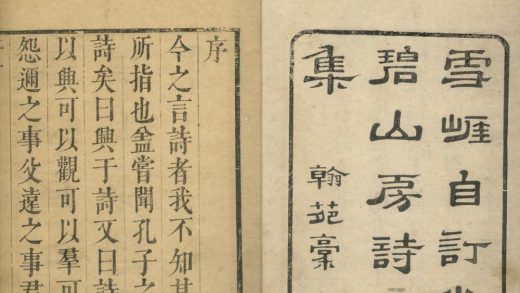 雪崕自訂
碧山房詩
集
翰苑稾
序
今之言詩者我不知其
所指也盍嘗聞孔子之
詩矣曰興于詩又曰詩
以興可以觀可以羣可
怨邇之事父遠之事君